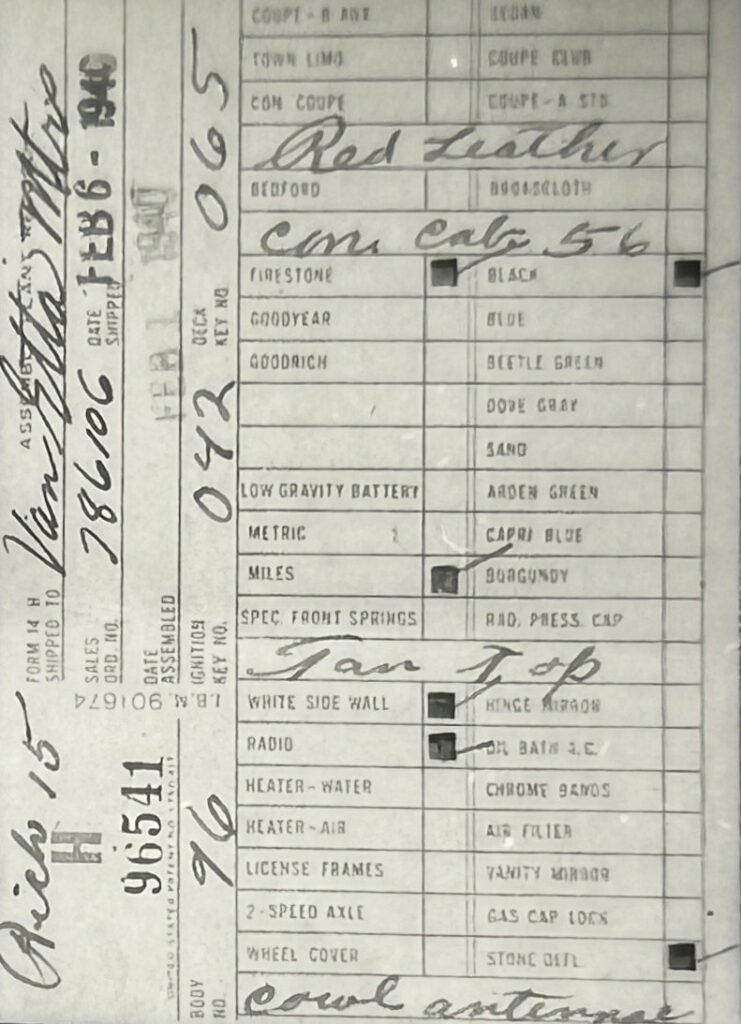 Rich 15
H
96541
FORM 14 H
SHIPPED TO Van Etta Mtrs
ASSEMBLY PLANT REPORT
SALES ORD. NO. 786106 DATE SHIPPED FEB 6 - 1940
DATE ASSEMBLED FEB 1 1940
I.B.M. 901674
BODY NO. 96 IGNITION KEY NO. 042 DECK KEY NO 065
COUPE - B AUX SEDAN
TOWN LIMO COUPE CLUB
CON COUPE COUPE - A STD
Red Leather
BEDFORD BROADCLOTH
Con. Cab 56
FIRESTONE BLACK
GOODYEAR BLUE
GOODRICH BEETLE GREEN
DOVE GRAY
SAND
LOW GRAVITY BATTERY ARDEN GREEN
METRIC CAPRI BLUE
MILES BURGUNDY
SPEC. FRONT SPRINGS RAD. PRESS. CAP
Tan Top
WHITE SIDE WALL HINGE MIRROR
RADIO OIL BATH A.C.
HEATER-WATER CHROME BANDS
HEATER-AIR AIR FILTER
LICENSE FRAMES VANITY MIRROR
2-SPEED AXLE GAS CAP LOCK
WHEEL COVER STONE DEFL
Cowl antennae